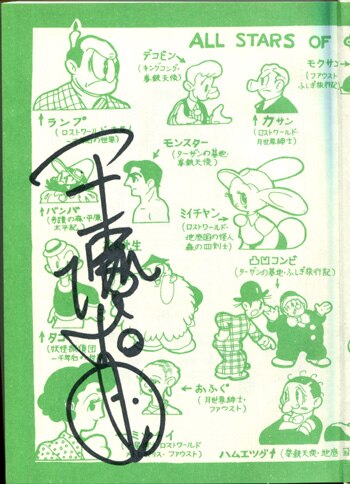 ALL STARS OF
デコモン→
(キングコング・
拳銃天使)
モクサン→
(ファウスト
ふしぎ旅行記)
↑ランプ
(ロストワールド
↑カサン
(ロストワールド・
月世界紳士)
モンスター
(ターザンの基地・
拳銃天使)
↑バンバ
(奇蹟の森・平原
太平記)
ミイチャン→
(ロストワールド・
地底国の怪人
森の四剣士)
凸凹コンビ
(ターザンの基地・ふしぎ旅行記)
↑タコ
←おふぐ
(月世界紳士・
ファウスト)
ロストワールド
ファウスト)
ハムエッグ↑(拳銃天使・地底